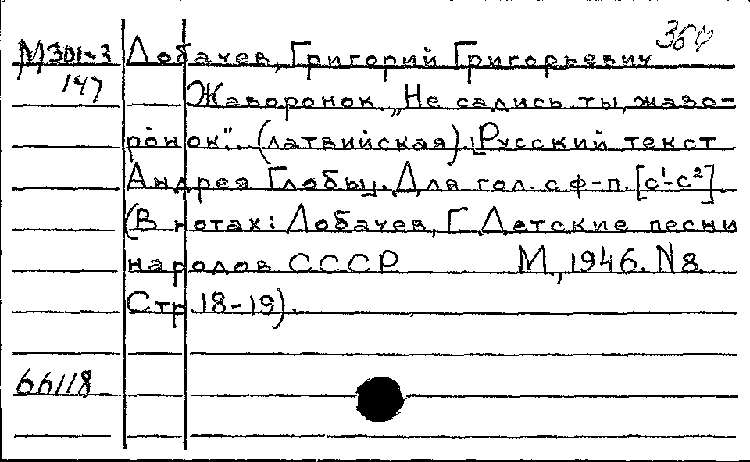 М301-3 Лобачев, Григорий Григорьевич
147 Жаворонок. „Не садись ты, жаво-
ронок". (латвийская). Русский текст
Андрея Глобы. Для гол. с ф-п. [c¹-c²]
(В нотах: Лобачев, Г. Детские песни
народов СССР М., 1946. N 8.
Стр. 18-19).
66118